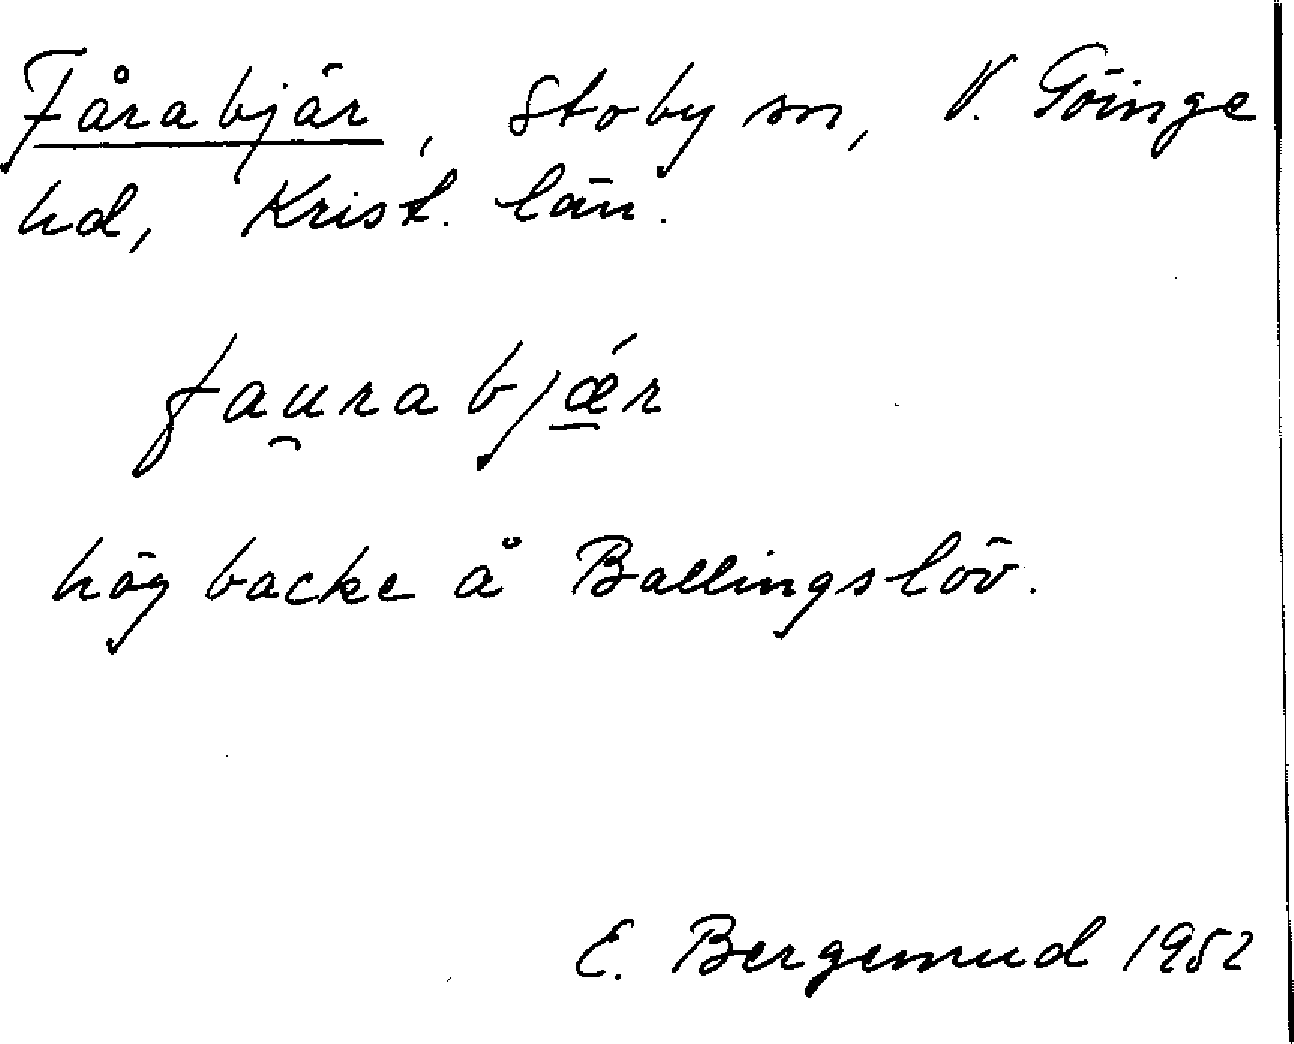 Fårabjär, Stoby sn, V. Göinge
hd, Krist. län.
fau̯rabjǽ̲r
hög backe å Ballingslöv.
E. Bergemud 1952